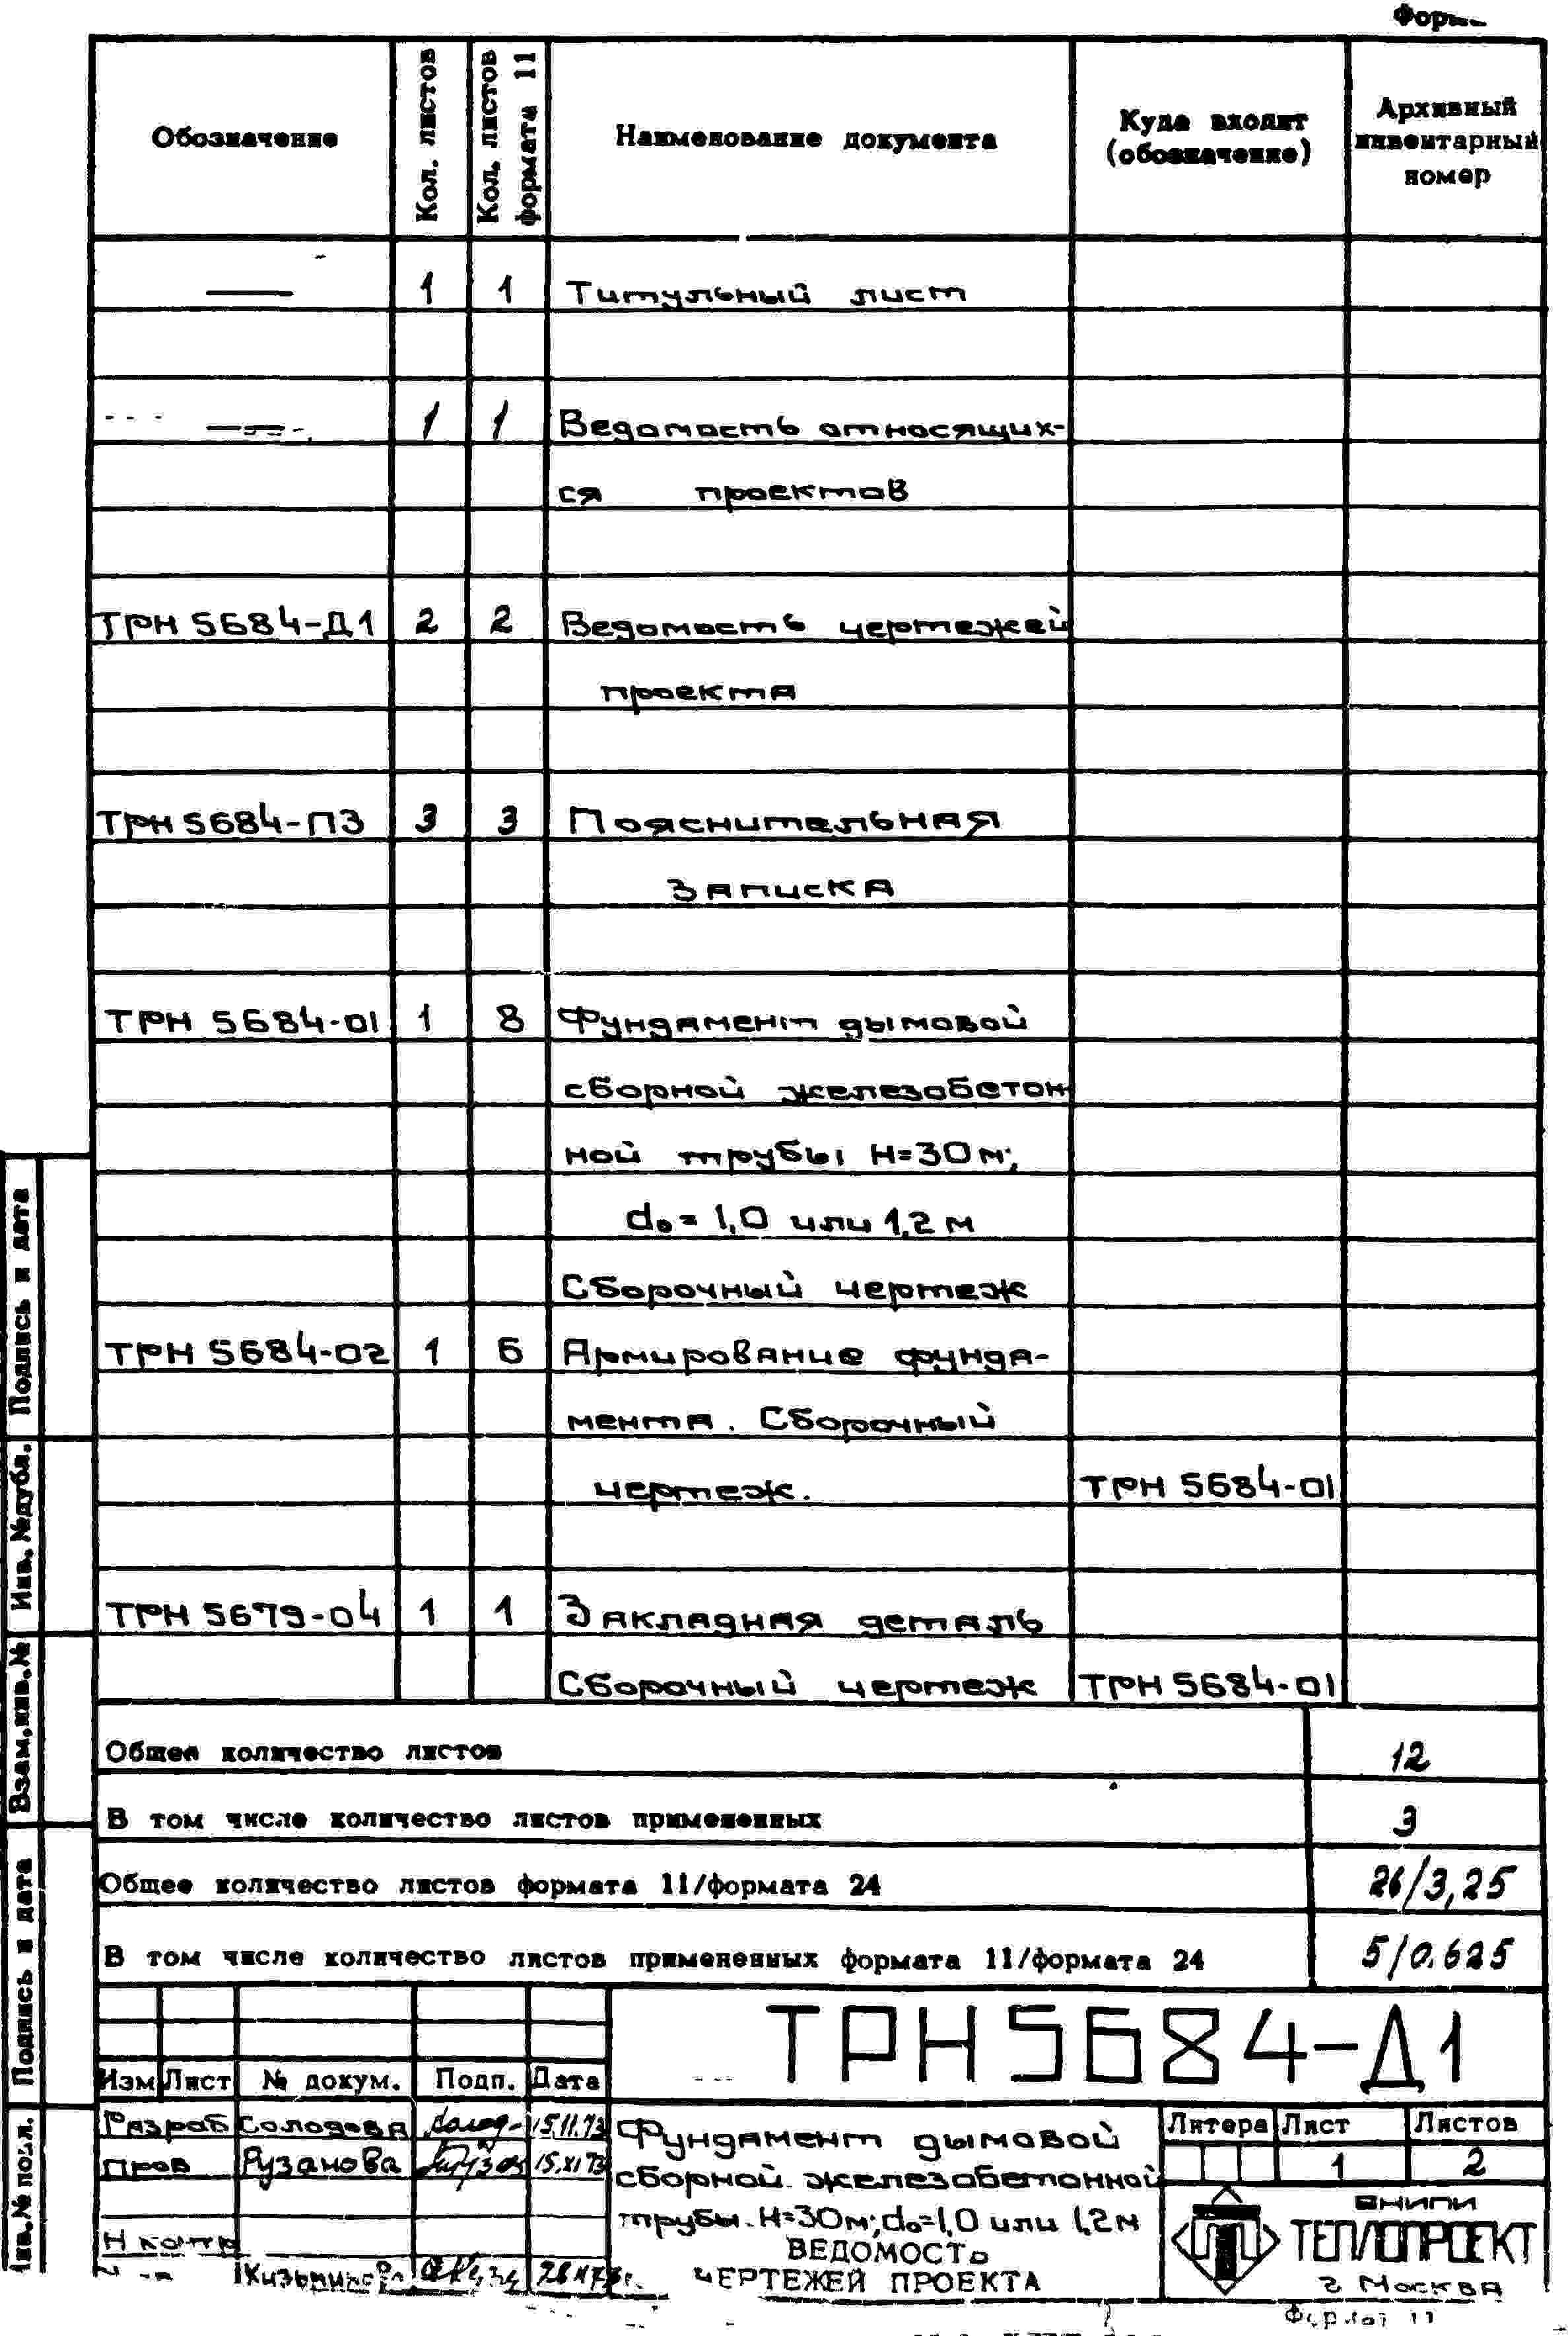 Обозначение
Кол. листов
Кол. листов формата 11
Наименование документа
Куда входит
(обозначение)
Архивный
инвентарный
номер
— 1 1 Титульный лист
— 1 1 Ведомость относящих-
ся проектов
ТРН 5684-Д1 2 2 Ведомость чертежей
проекта
ТРН 5684-ПЗ 3 3 Пояснительная
записка
ТРН 5684-01 1 8 Фундамент дымовой
сборной железобетон
ной трубы H=30м;
d₀=1,0 или 1,2 м
Сборочный чертеж
ТРН 5684-02 1 6 Армирование фунда-
мента. Сборочный
чертеж. ТРН 5684-01
ТРН 5679-04 1 1 Закладная деталь
Сборочный чертеж ТРН 5684-01
Общее количество листов 12
В том числе количество листов примененных 3
Общее количество листов формата 11/формата 24 26/3,25
В том числе количество листов примененных формата 11/формата 24 5/0.625
Подпись и дата
Инв. №дубл.
Взам.инв.№
Подпись и дата
Инв.№подл.
ТРН5684-Д1
Изм Лист № докум. Подп. Дата
Разраб Солодова 15.11.73
Пров Рузанова 15.XI 73
Н контр
Фундамент дымовой
сборной железобетонной
трубы. H=30м; d₀=1,0 или 1,2м
ВЕДОМОСТЬ
ЧЕРТЕЖЕЙ ПРОЕКТА
Литера Лист Листов
1 2
ВНИПИ
ТЕПЛОПРОЕКТ
г Москва
Формат 11